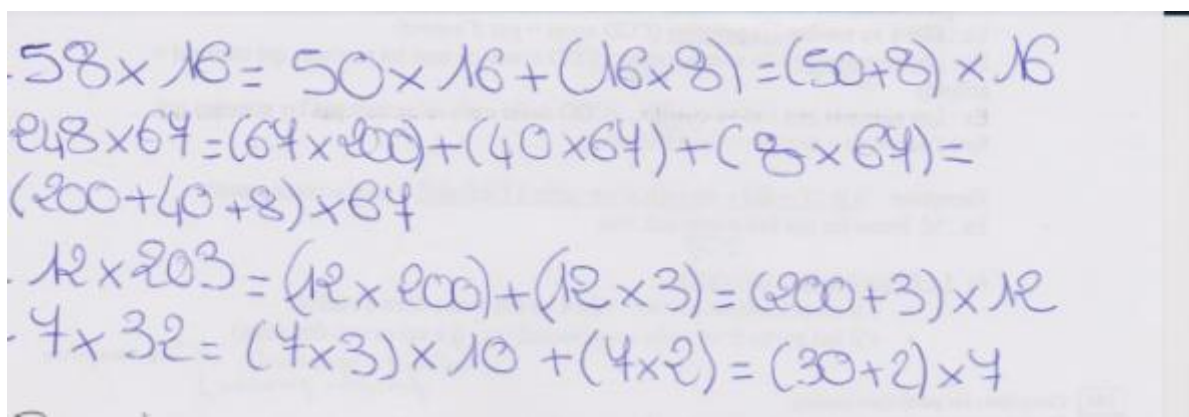 - 58 × 16 = 50 × 16 + (16 × 8) = (50+8) × 16
248 × 67 = (67 × 200) + (40 × 67) + (8 × 67) =
(200 + 40 + 8) × 67
- 12 × 203 = (12 × 200) + (12 × 3) = (200 + 3) × 12
- 7 × 32 = (7 × 3) × 10 + (7 × 2) = (30 + 2) × 7